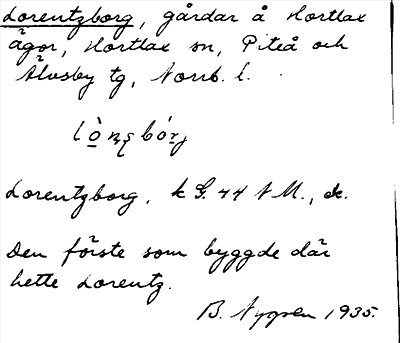 Lorentzborg, gårdar å Hortlax
ägor, Hortlax sn, Piteå och
Älvsby tg, Norrb. l.
Lorentzborg, k G. 44 N M., ek.
Den förste som byggde där
hette Lorentz.
B. Nygren 1935.